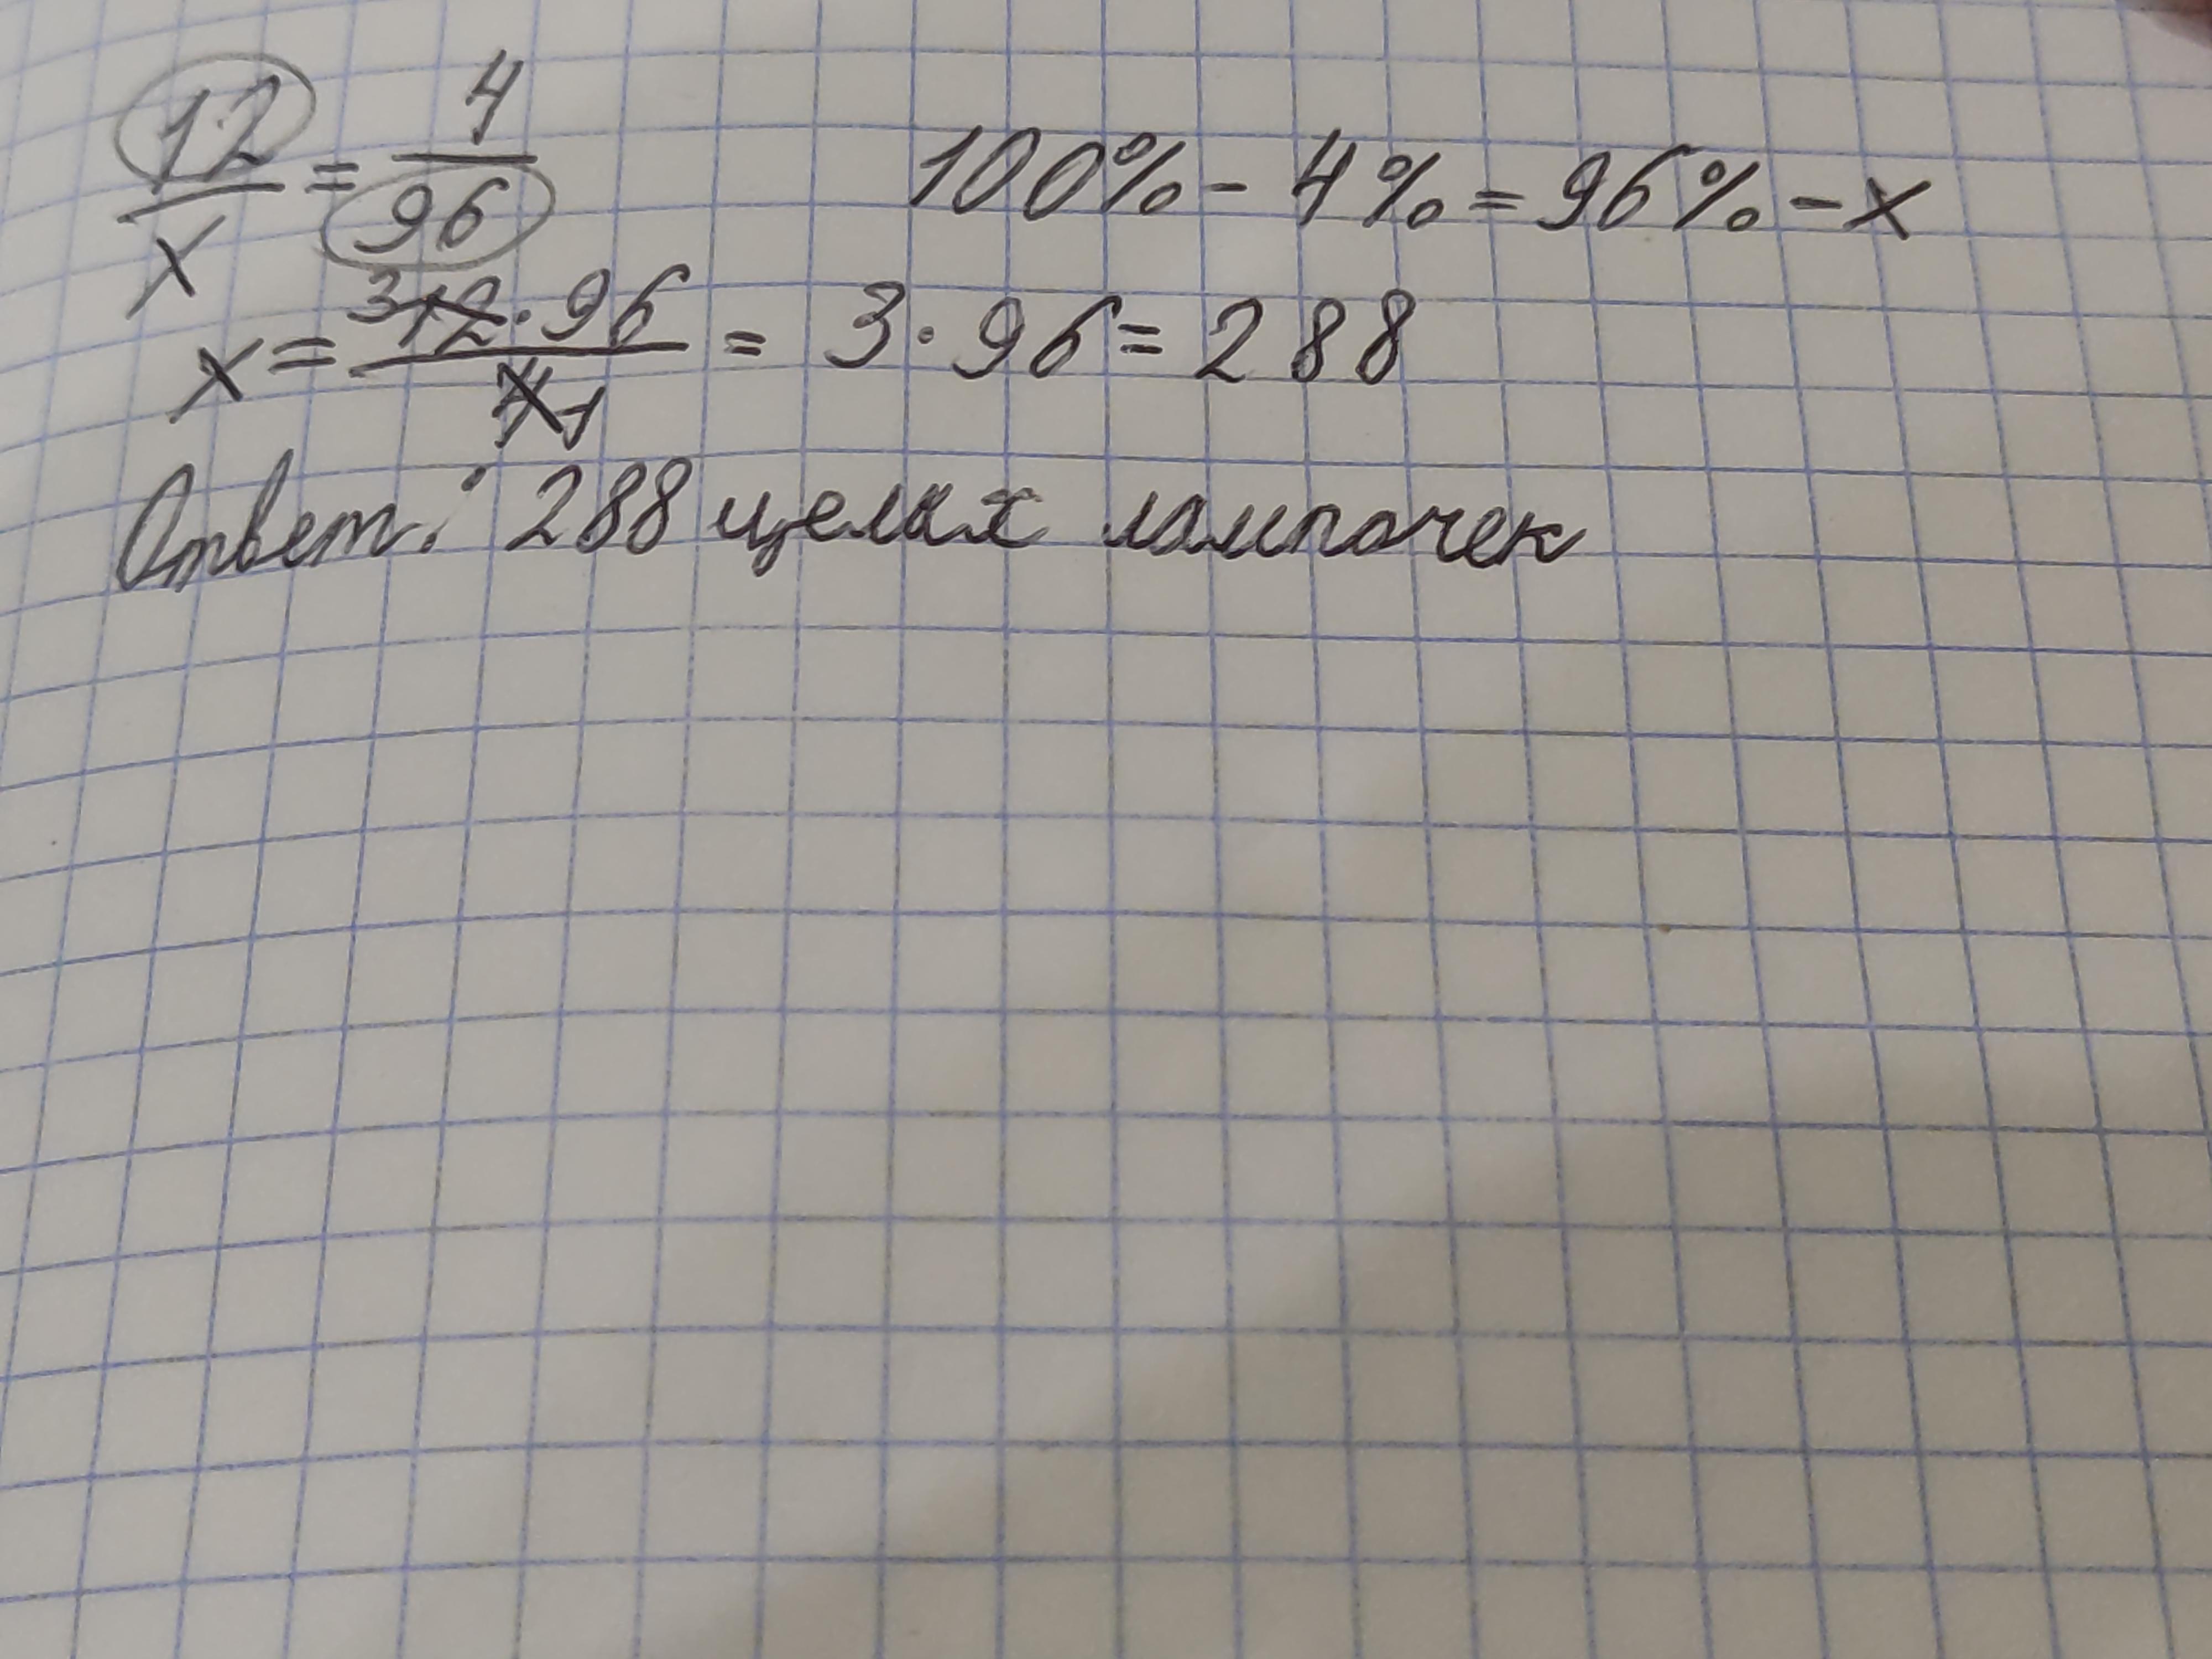 12/x = 4/96 100% - 4% = 96% - x
x = 12·96/4 = 3·96 = 288
Ответ: 288 целых лампочек